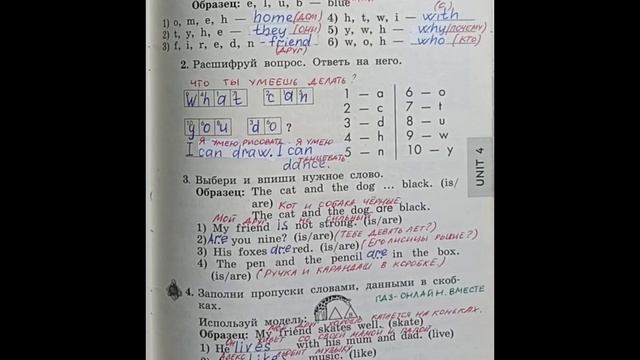 Образец: e, l, u, b — blue
1) o, m, e, h — home (дом) 4) h, t, w, i — with
2) t, y, h, e — they (они) 5) y, w, h — why (почему)
3) f, i, r, e, d, n - friend 6) w, o, h — who (кто)
(друг)
2. Расшифруй вопрос. Ответь на него.
ЧТО ТЫ УМЕЕШЬ ДЕЛАТЬ?
what can
you do ?
1 — a 6 — o
2 — c 7 — t
3 — d 8 — u
4 — h 9 — w
5 — n 10 — y
Я УМЕЮ РИСОВАТЬ. Я УМЕЮ
I can draw. I can
ТАНЦЕВАТЬ
dance.
UNIT 4
3. Выбери и впиши нужное слово.
Образец: The cat and the dog ... black. (is/
are) КОТ И СОБАКА ЧЁРНЫЕ.
The cat and the dog are black.
МОЙ ДРУГ НЕ СИЛЬНЫЙ
1) My friend is not strong. (is/are)
2) Are you nine? (is/are) (ТЕБЕ ДЕВЯТЬ ЛЕТ?)
3) His foxes are red. (is/are) (ЕГО ЛИСИЦЫ РЫЖИЕ?)
4) The pen and the pencil are in the box.
(is/are) (РУЧКА И КАРАНДАШ В КОРОБКЕ.)
4. Заполни пропуски словами, данными в скоб-
ках.
ГДЗ-ОНЛАЙН. ВМЕСТЕ
Используй модель:
ДРУГ КАТАЕТСЯ НА КОНЬКАХ.
Образец: My friend skates well. (skate)
СО СВОЕЙ МАМОЙ И ПАПОЙ
1) He lives with his mum and dad. (live)
МУЗЫКУ
likes music. (like)